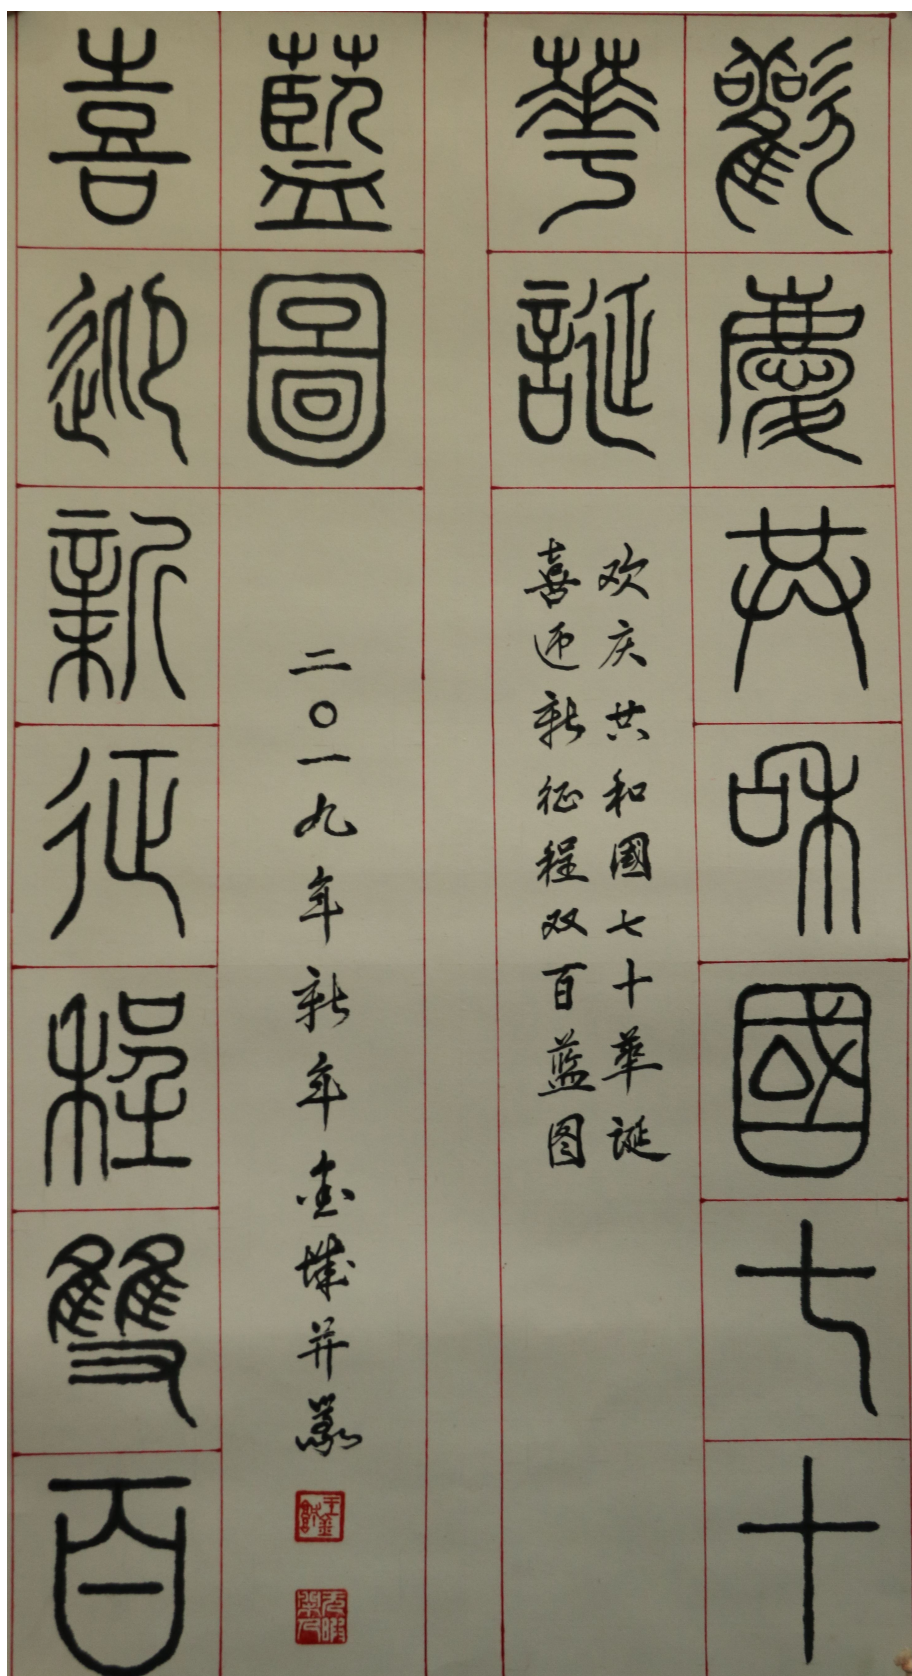 歡慶共和國七十
華誕
欢庆共和國七十華誕
喜迎新征程双百蓝图
藍圖
二〇一九年新年金城并篆
喜迎新征程雙百